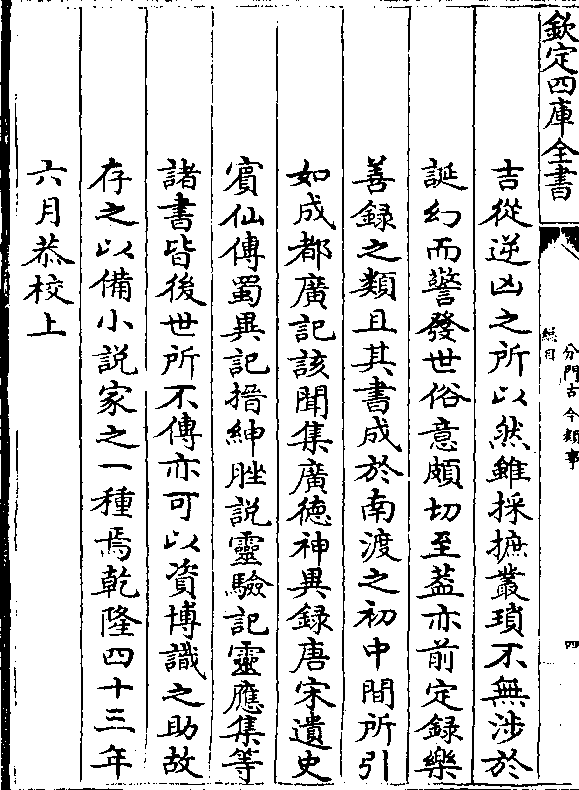 欽定四庫全書
分門古今類事
總目
四
吉從逆凶之所以然雖採摭叢瑣不無涉於
誕幻而警發世俗意頗切至葢亦前定録樂
善録之類且其書成於南渡之初中間所引
如成都廣記該聞集廣德神異録唐宋遺史
賓仙傳蜀異記搢紳脞説靈驗記靈應集等
諸書皆後世所不傳亦可以資博識之助故
存之以備小説家之一種焉乾隆四十三年
六月恭校上